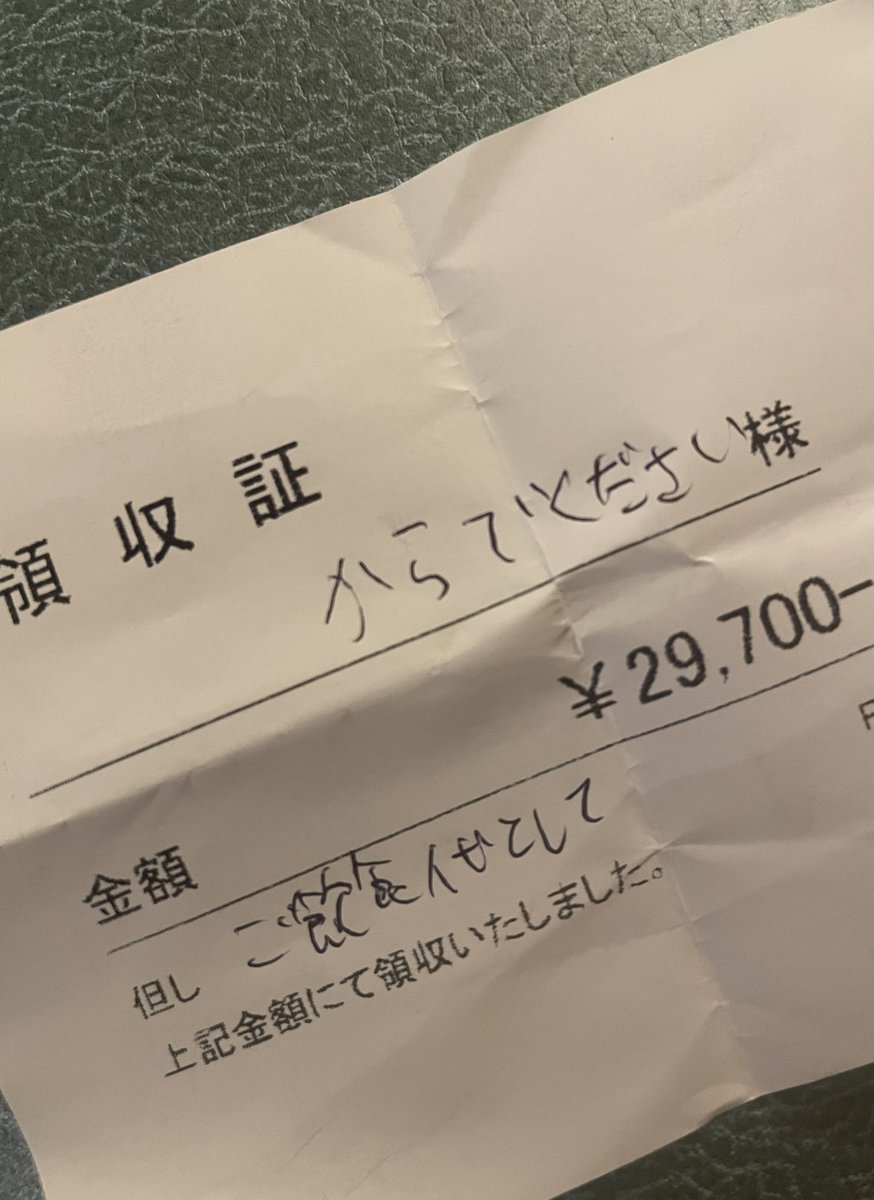 領収証
からでください様
¥29,700-
金額
但し ご飲食代として
上記金額にて領収いたしました。